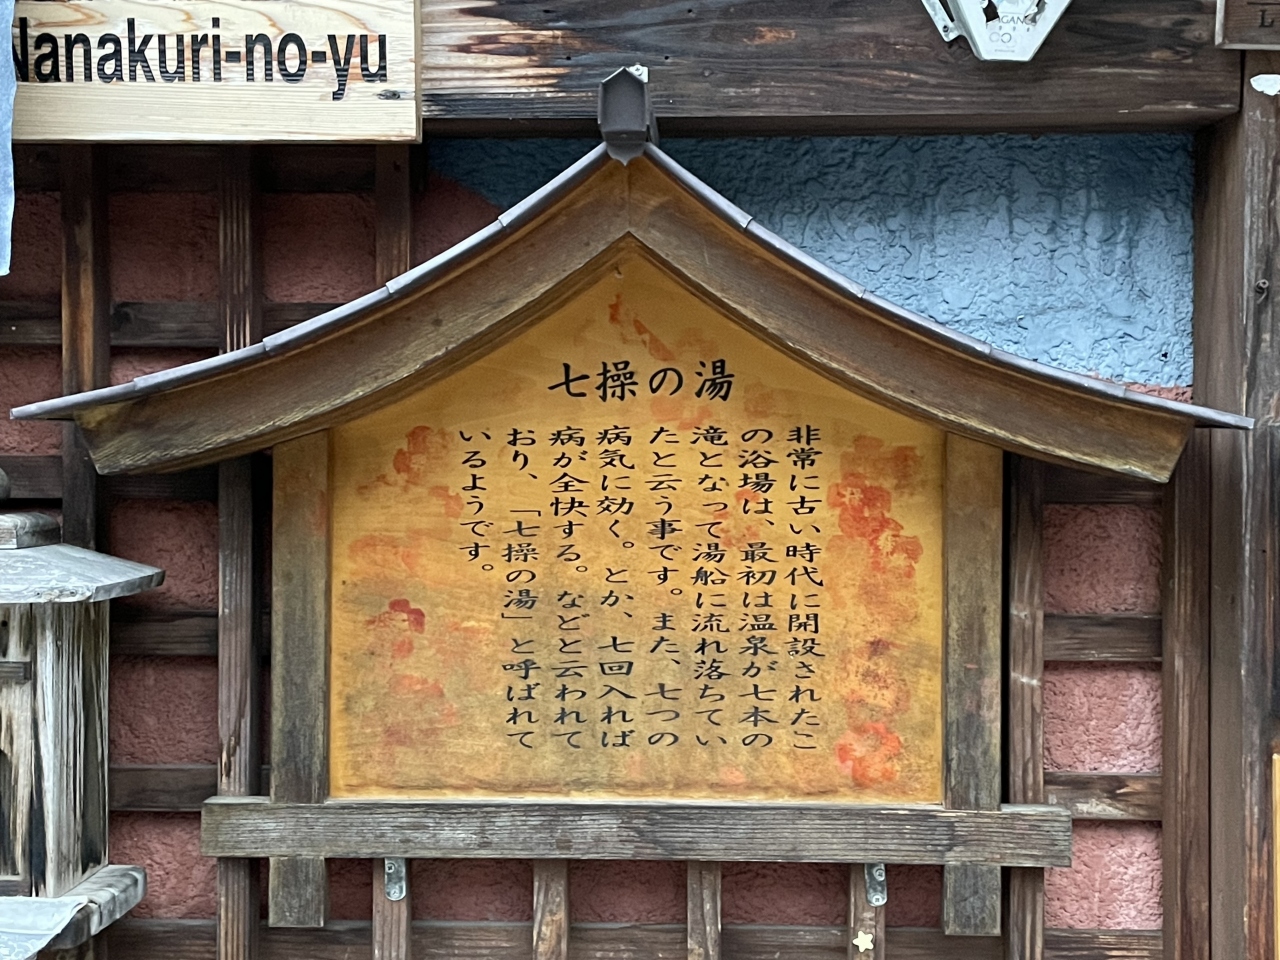 Nanakuri-no-yu
七操の湯
非常に古い時代に開設されたこ
の浴場は、最初は温泉が七本の
滝となって湯船に流れ落ちてい
たと云う事です。また、七つの
病気に効く。とか、七回入れば
病が全快する。などと云われて
おり、「七操の湯」と呼ばれて
いるようです。